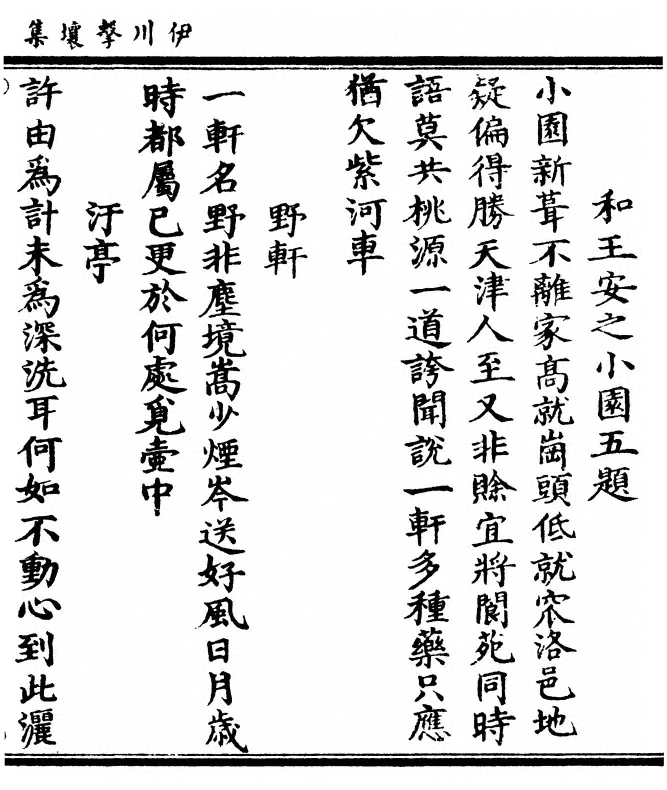 伊川擊壤集
和王安之小園五題
小園新葺不離家高就崗頭低就窊洛邑地
疑偏得勝天津人至又非賒宜將閬苑同時
語莫共桃源一道誇聞說一軒多種藥只應
猶欠紫河車
野軒
一軒名野非塵境嵩少煙岑送好風日月歲
時都屬已更於何處覓壷中
汙亭
許由爲計未爲深洗耳何如不動心到此灑